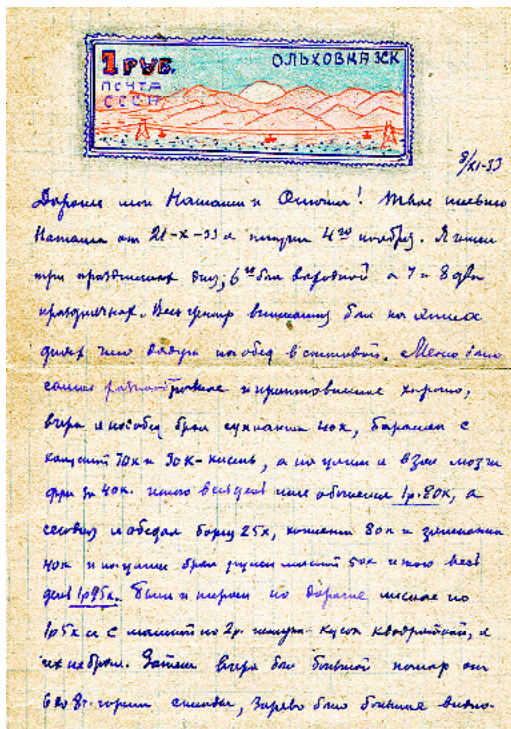 1 РУБ.
ОЛЬХОВКА ЗСК
ПОЧТА
СССР
8/XI-33
Дорогие мои Наташа и ! Твое письмо
Наташа от 21-X-33 я получил 4го ноября. Я имел
три праздничных дня; 6го был выходной а 7 и 8 два
праздничных. Весь центр внимания был на этих
днях что дадут на обед в столовой. Меню было
самое разнообразное и приготовление хорошо,
вчера я на обед брал суп 40к, баранина с
капустой 70к и 30к - кисель, а на ужин я взял мозги
фри за 40к. итого весь день мне обошелся 1р.80к, а
сегодня я обедал борщ 25к, котлеты 80к и 
40к и на ужин брал 50к итого весь
день 1р95к. Были и пироги но дорогие мясное по
1р5к и с по 2р. кусок квадратный, я
их не брал. Затем вчера был большой пожар от
6 до 8ч. горели склады, зарево было большое видно-